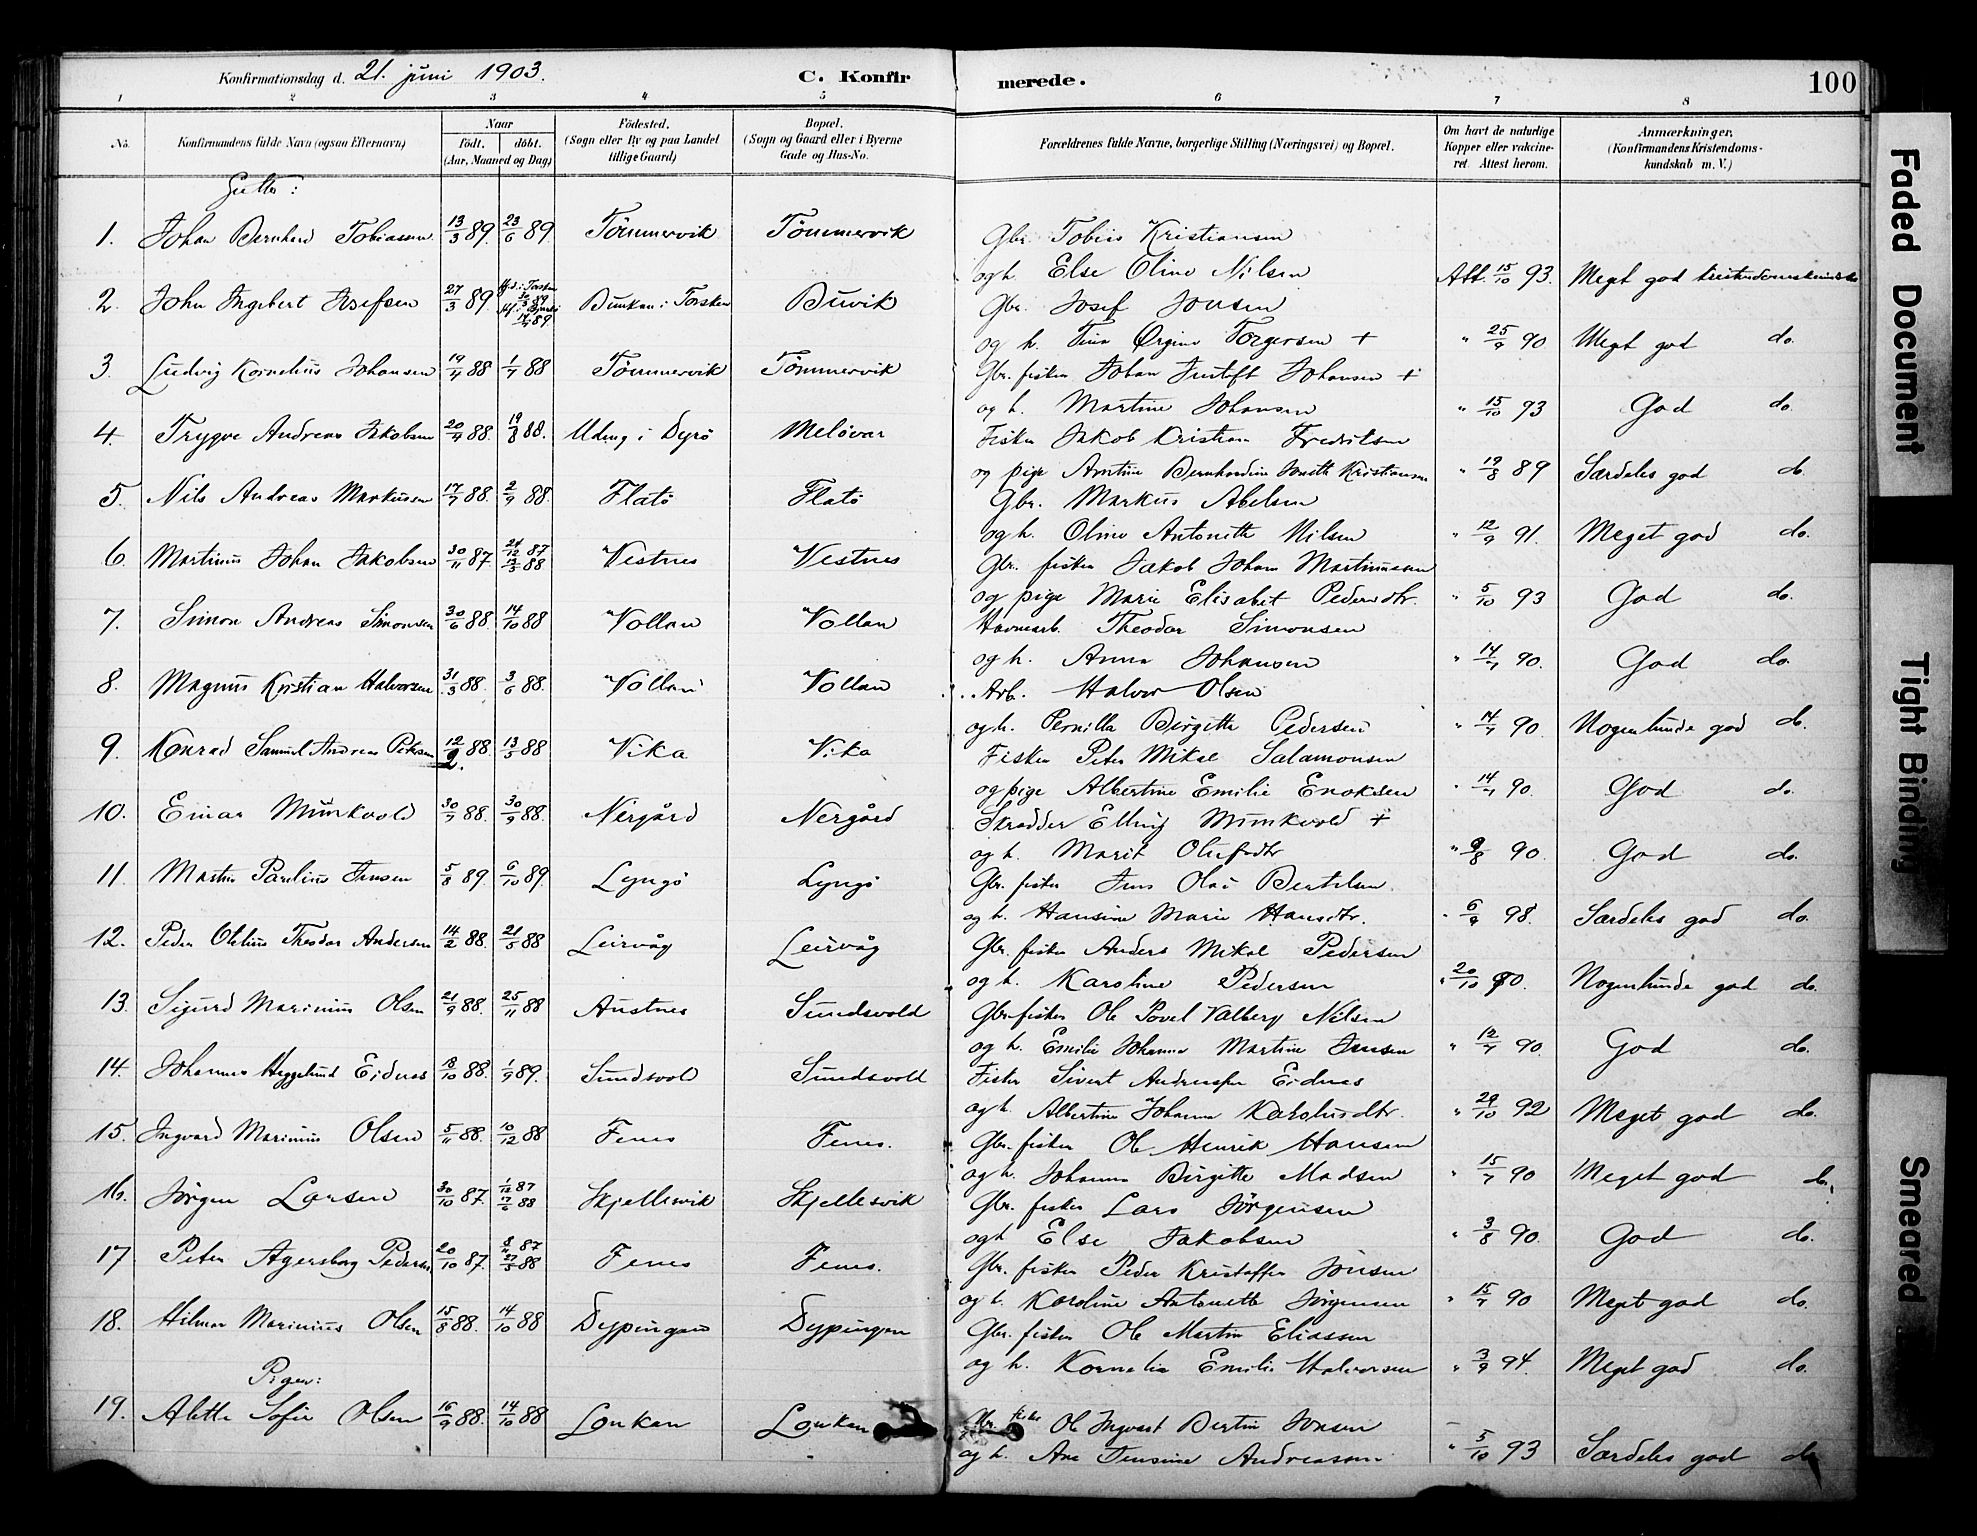 Konfirmationsdag d. 21. juni 1903. C. Konfirmerede. 100
1 2 3 4 5 6 7 8
No. Konfirmandens fulde Navn (ogsaa Efternavn) Naar Födt. döbt. (Aar, Maaned og Dag) Födested. (Sogn eller By og paa Landet tillige Gaard) Bopæl. (Sogn og Gaard eller i Byerne Gade og Hus-No. Forældrenes fulde Navne, borgerlige Stilling (Næringsvei) og Bopæl. Om havt de naturlige Kopper eller vaccineret. Attest herom. Anmærkninger. (Konfirmandens Kristendomskundskab m. V.)
Gutter:
1. Johan Bernhard Tobiassen 13/3 89. 23/6 89. Tömmervik Tömmervik Gbr. Tobias Kristiansen
og h. Else Oline Nilsen Att. 15/10 93. Meget god kristendomskundskab
2. John Ingebert Josefsen 27/3 89 Bunkan i Torsken Buvik Gbr. Josef Jonsen
og h. Tina Ørgine Torgersen + " 25/9 90 Meget god do.
3. Ludvig Kornelius Johansen 19/4 88 1/7 88 Tömmervik Tömmervik Gbr. fisker Johan Justoft Johansen +
og h. Martine Johansen " 15/10 93 God do.
4. Trygve Andreas Jakobsen 20/4 88. 19/8 88. i Dyrö Melövar Fisker Jakob Kristian Fredriksen
og pige Arntine Bernhardine Kristiansen " 19/8 89 Særdeles god do.
5. Nils Andreas Markussen 17/7 88. 2/9 88. Flatö Flatö Gbr. Markus Abelsen
og h. Oline Antonette Nilsen " 12/9 91. Meget god do.
6. Martinus Johan Jakobsen 30/11 87. 24/12 87 13/5 88 Vestnes Vestnes Gbr. fisker Jakob Johan Martinussen
og pige Marie Elisabet Pedersdtr. " 5/10 93 God do.
7. Simon Andreas Simonsen 30/6 88. 14/10 88 Vollan Vollan Havnearb. Theodor Simonsen
og h. Anna Johansen " 14/7 90. God do.
8. Magnus Kristian Halvorsen 31/3 88. 3/6 88. Vollan Vollan Arb. Halvor Olsen
og h. Pernilla Birgitte Pedersen " 14/7 90. Nogenlunde god do.
9. Konrad Samuel Andreas Petersen 12/2 88. 13/5 88 Vika Vika Fisker Peter Mikal Salamonsen
og pige Albertine Emilie Enoksen " 14/7 90. God do.
10. Einar Munkvold 30/7 88. 30/9 88. Nergård Nergård Skrædder Elling Munkvold +
og h. Marit Olufsdtr " 9/8 90. God do.
11. Martin Paulius Jensen 5/8 89. 6/10 89. Lyngö Lyngö Gbr. fisker Jens Olai Bertelsen.
og h. Hansine Marie Hansdtr. " 6/9 98. Særdeles god do.
12. Peder Oletius Theodor Andersen 14/2 88. 21/5 88 Leirvåg Leirvåg Gbr. fisker Anders Mikal Pedersen
og h. Karoline Pedersen " 20/10 90. Nogenlunde god do.
13. Sigurd Marinius Olsen 21/9 88. 25/11 88 Austnes Sundsvold Gbr. fisker Ole Povel Valberg Nilsen
og h. Emilie Johanna Martine Jensen " 12/7 90. God do.
14. Johannes Heggelund Eidnes 18/10 88. 1/9 89. Sundsvold Sundsvold Fisker Sivert Eidnes
og h. Albertine Johanna Karolusdtr. " 29/10 92 Meget god do.
15. Ingvard Marinius Olsen 5/11 88. 10/12 88 Fenes Fenes. Gbr. fisker Ole Henrik Hansen
og h. Johanna Birgitte Madsen " 15/7 90 Meget god do.
16. Jörgen Larsen 30/10 87. 1/12 87 17/6 88 Skjellesvik Skjellesvik Gbr. fisker Lars Jörgensen
og h Else Jakobsen " 3/8 90. God do.
17. Peter Agersborg Pedersen 20/10 87. 8/11 87 27/5 88 Fenes Fenes. Gbr. fisker Peder Kristoffer Jonsen
og h. Karoline Antonette Jörgensen " 15/7 90 Meget god do.
18. Hilmar Marinius Olsen 15/8 88. 14/10 88 Dypingen Dypingen Gbr. fisker Ole Martin Eliassen
og h. Kornelia Emilie Halvorsen " 3/9 94. Meget god do.
Piger:
19. Alette Sofie Olsen 16/9 88. 14/10 88 Lonkan Lonkan Gbr. fisker Ole Ingvart Bertin Jonsen
og h. Ane Jensine Andreassen " 5/10 93 Særdeles god do
Faded Document
Tight Binding
Smeared